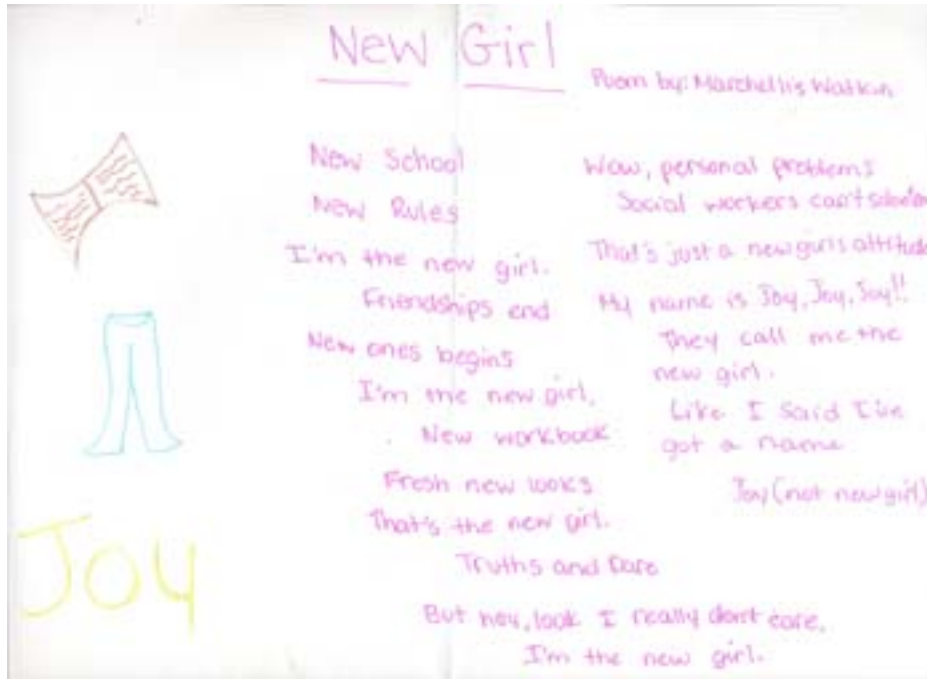 New Girl
Poem by: Marchellis Watkin
New School
New Rules
I'm the new girl.
Friendships end
New ones begins
I'm the new girl.
New workbook
Fresh new looks
That's the new girl.
Truths and Dare
But hey, look I really don't care,
I'm the new girl.
Wow, personal problems
Social workers can't
That's just a new girls attitude
My name is Joy, Joy, Joy!!
They call me the
new girl.
Like I said I've
got a name
Joy (not new girl)
Joy